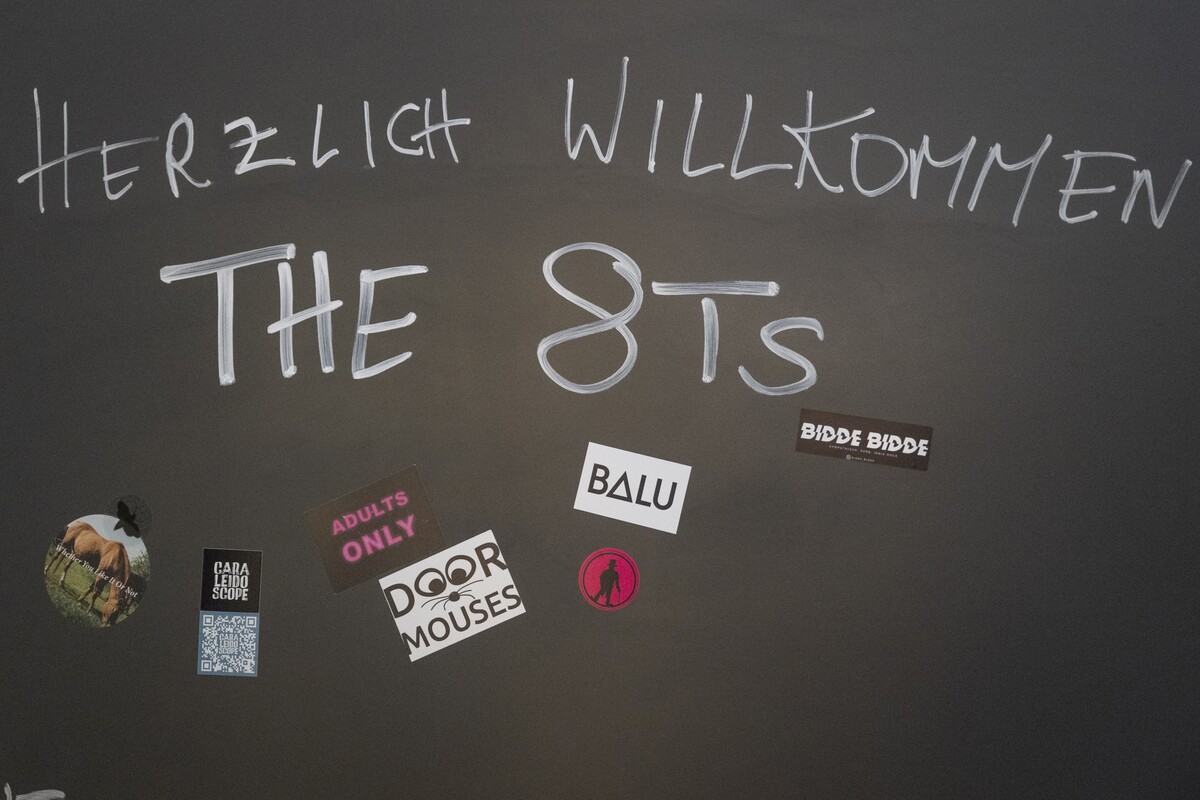 HERZLICH WILLKOMMEN
THE 8Ts
BIDDE BIDDE
BALU
ADULTS
ONLY
DOOR
MOUSES
Whether You Like It Or Not
CARA
LEIDO
SCOPE
CARA
LEIDO
SCOPE